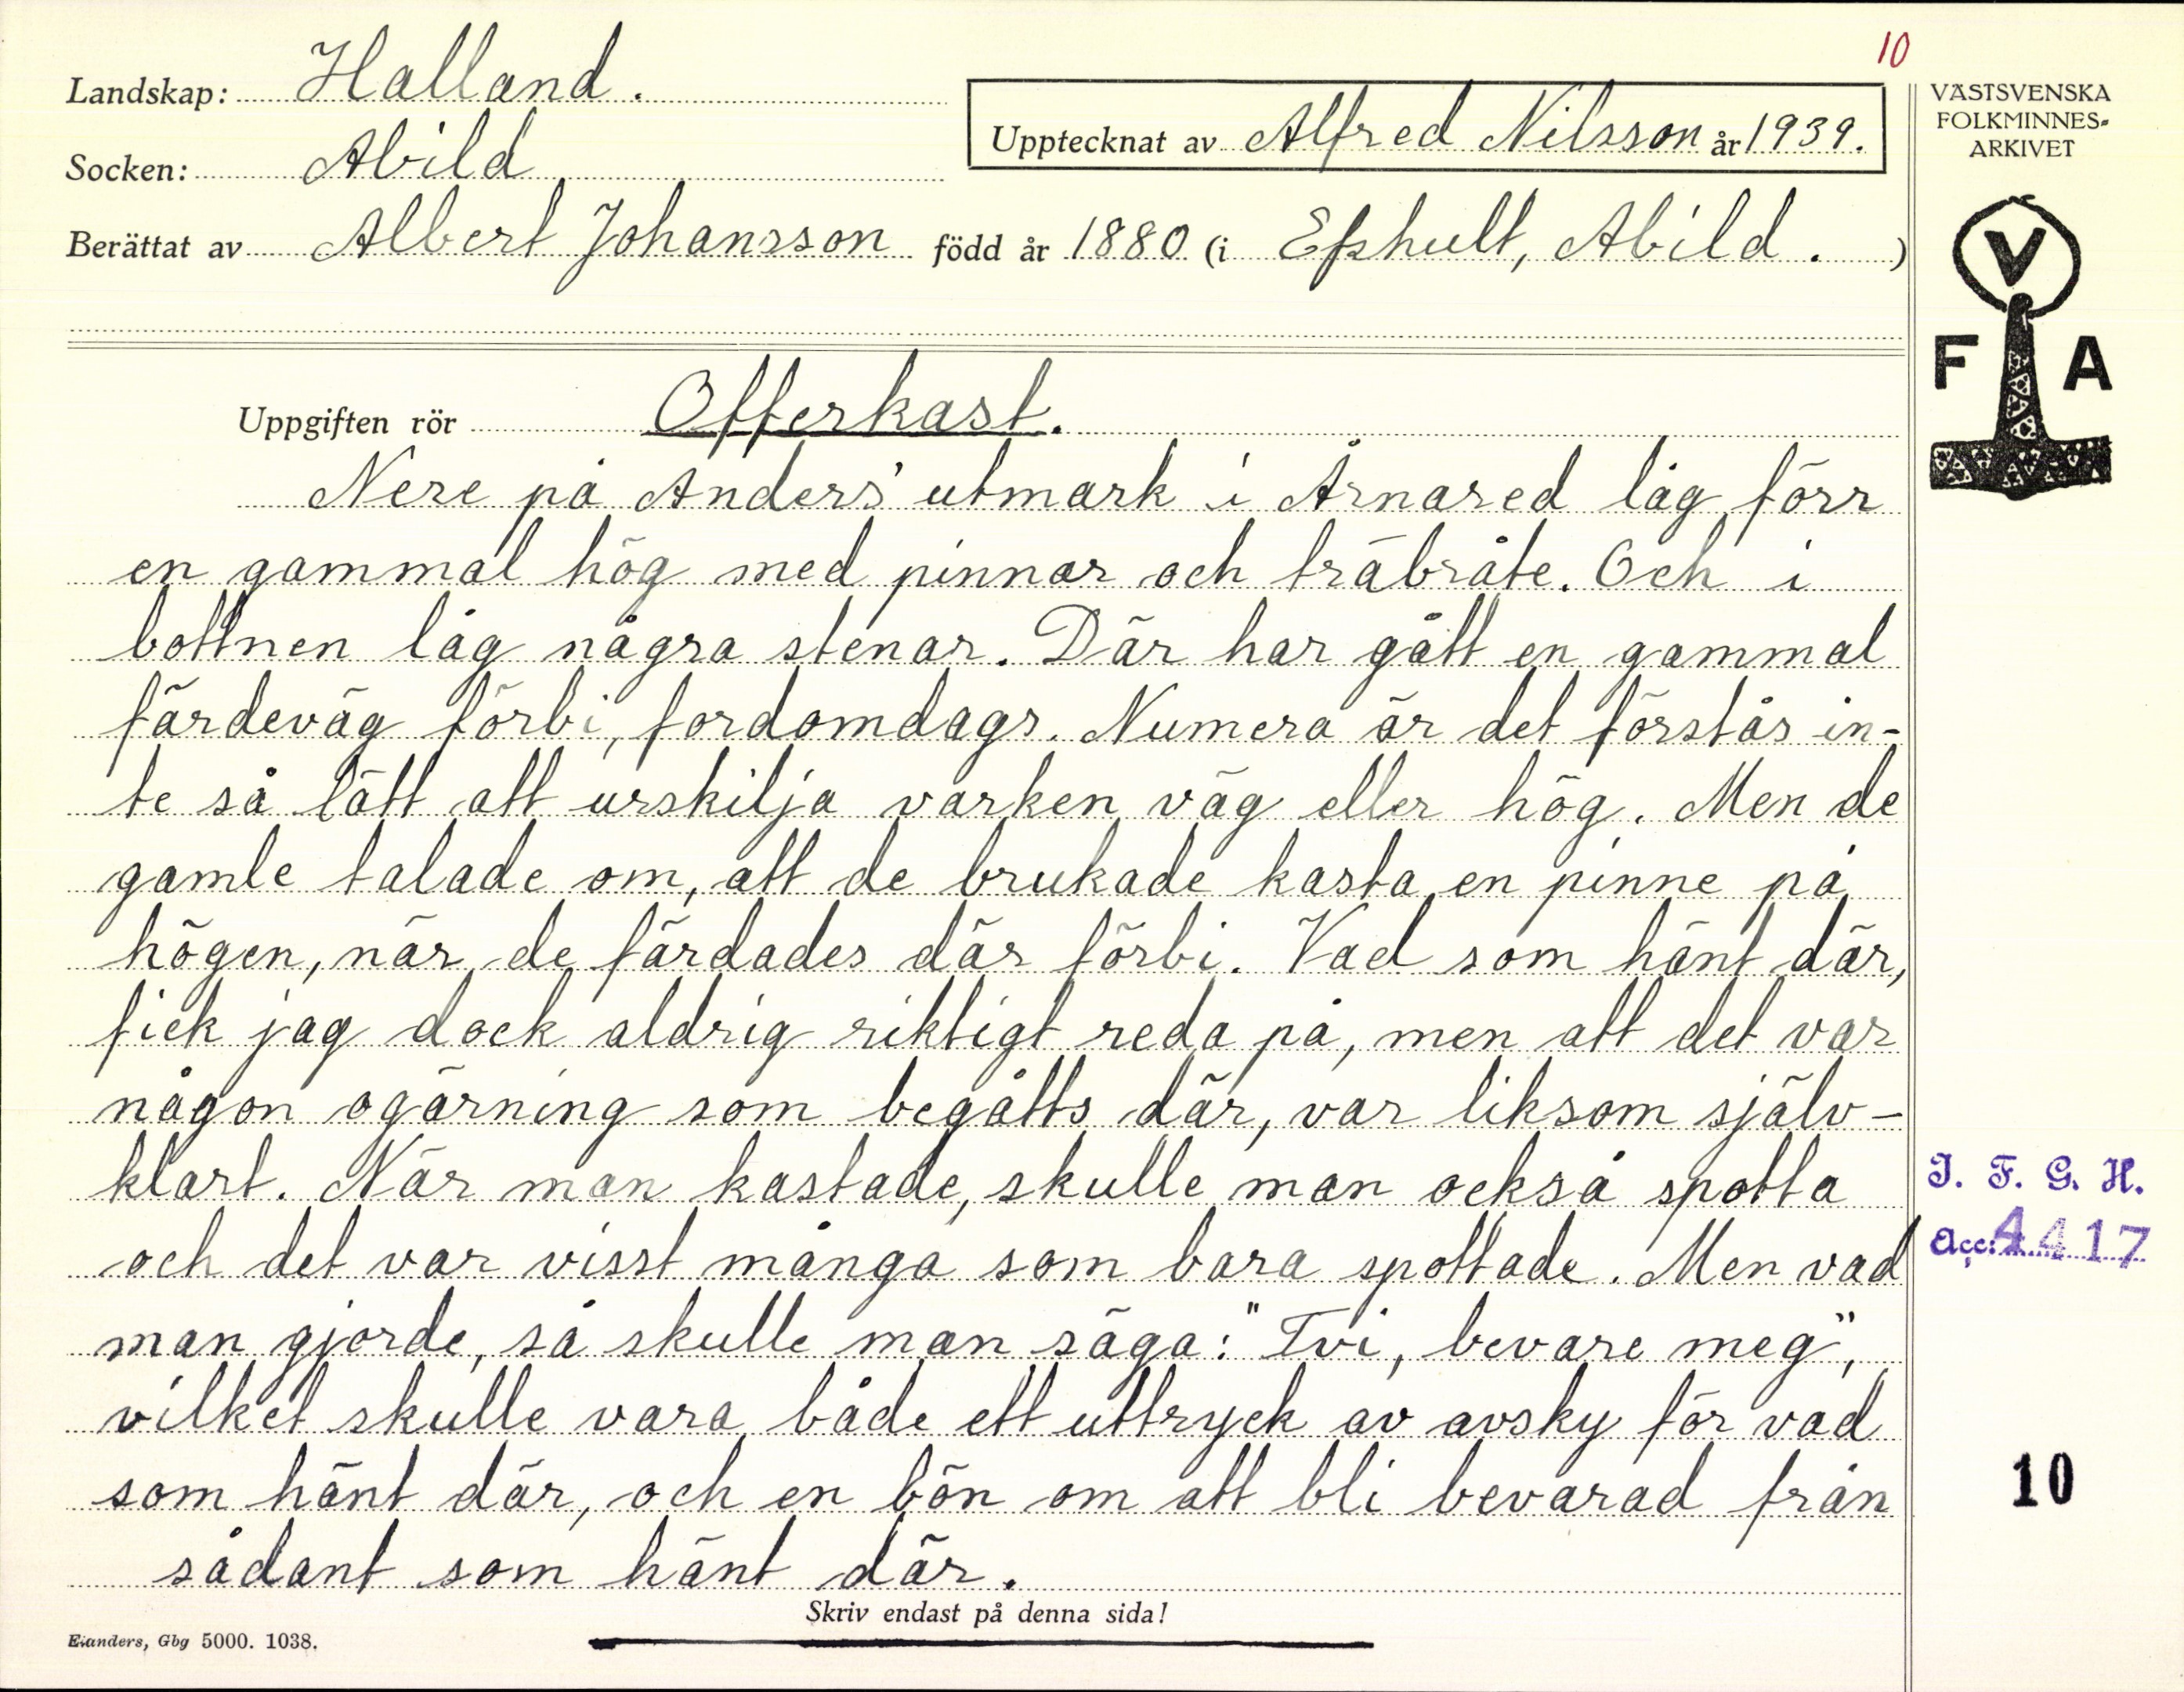 10
Landskap: Halland.
Upptecknat av Alfred Nilsson år 1939.
Socken: Abild
Berättat av Albert Johansson född år 1880 (i Efshult, Abild.)
VÄSTSVENSKA
FOLKMINNES-
ARKIVET
V
F A
Uppgiften rör Offerkast.
Nere på Anders' utmark i Årnared låg förr
en gammal hög med pinnar och träbråte. Och i
bottnen låg några stenar. Där har gått en gammal
färdeväg förbi, fordomdags. Numera är det förstås in-
te så lätt att urskilja varken väg eller hög. Men de
gamle talade om, att de brukade kasta en pinne på
högen, när de färdades där förbi. Vad som hänt där,
fick jag dock aldrig riktigt reda på, men att det var
någon ogärning som begåtts där, var liksom själv-
klart. När man kastade, skulle man också spotta
och det var visst många som bara spottade. Men vad
man gjorde, så skulle man säga: "Tvi, bevare meg",
vilket skulle vara både ett uttryck av avsky för vad
som hänt där, och en bön om att bli bevarad från
sådant som hänt där.
I. F. G. H.
Acc: 4417
10
Skriv endast på denna sida!
Elanders, Gbg 5000. 1038.